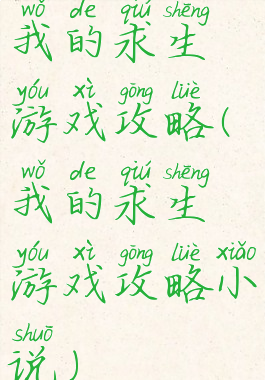 wǒ de qiú shēng
我的求生
yóu xì gōng lüè
游戏攻略(
wǒ de qiú shēng
我的求生
yóu xì gōng lüè xiǎo
游戏攻略小
shuō
说)